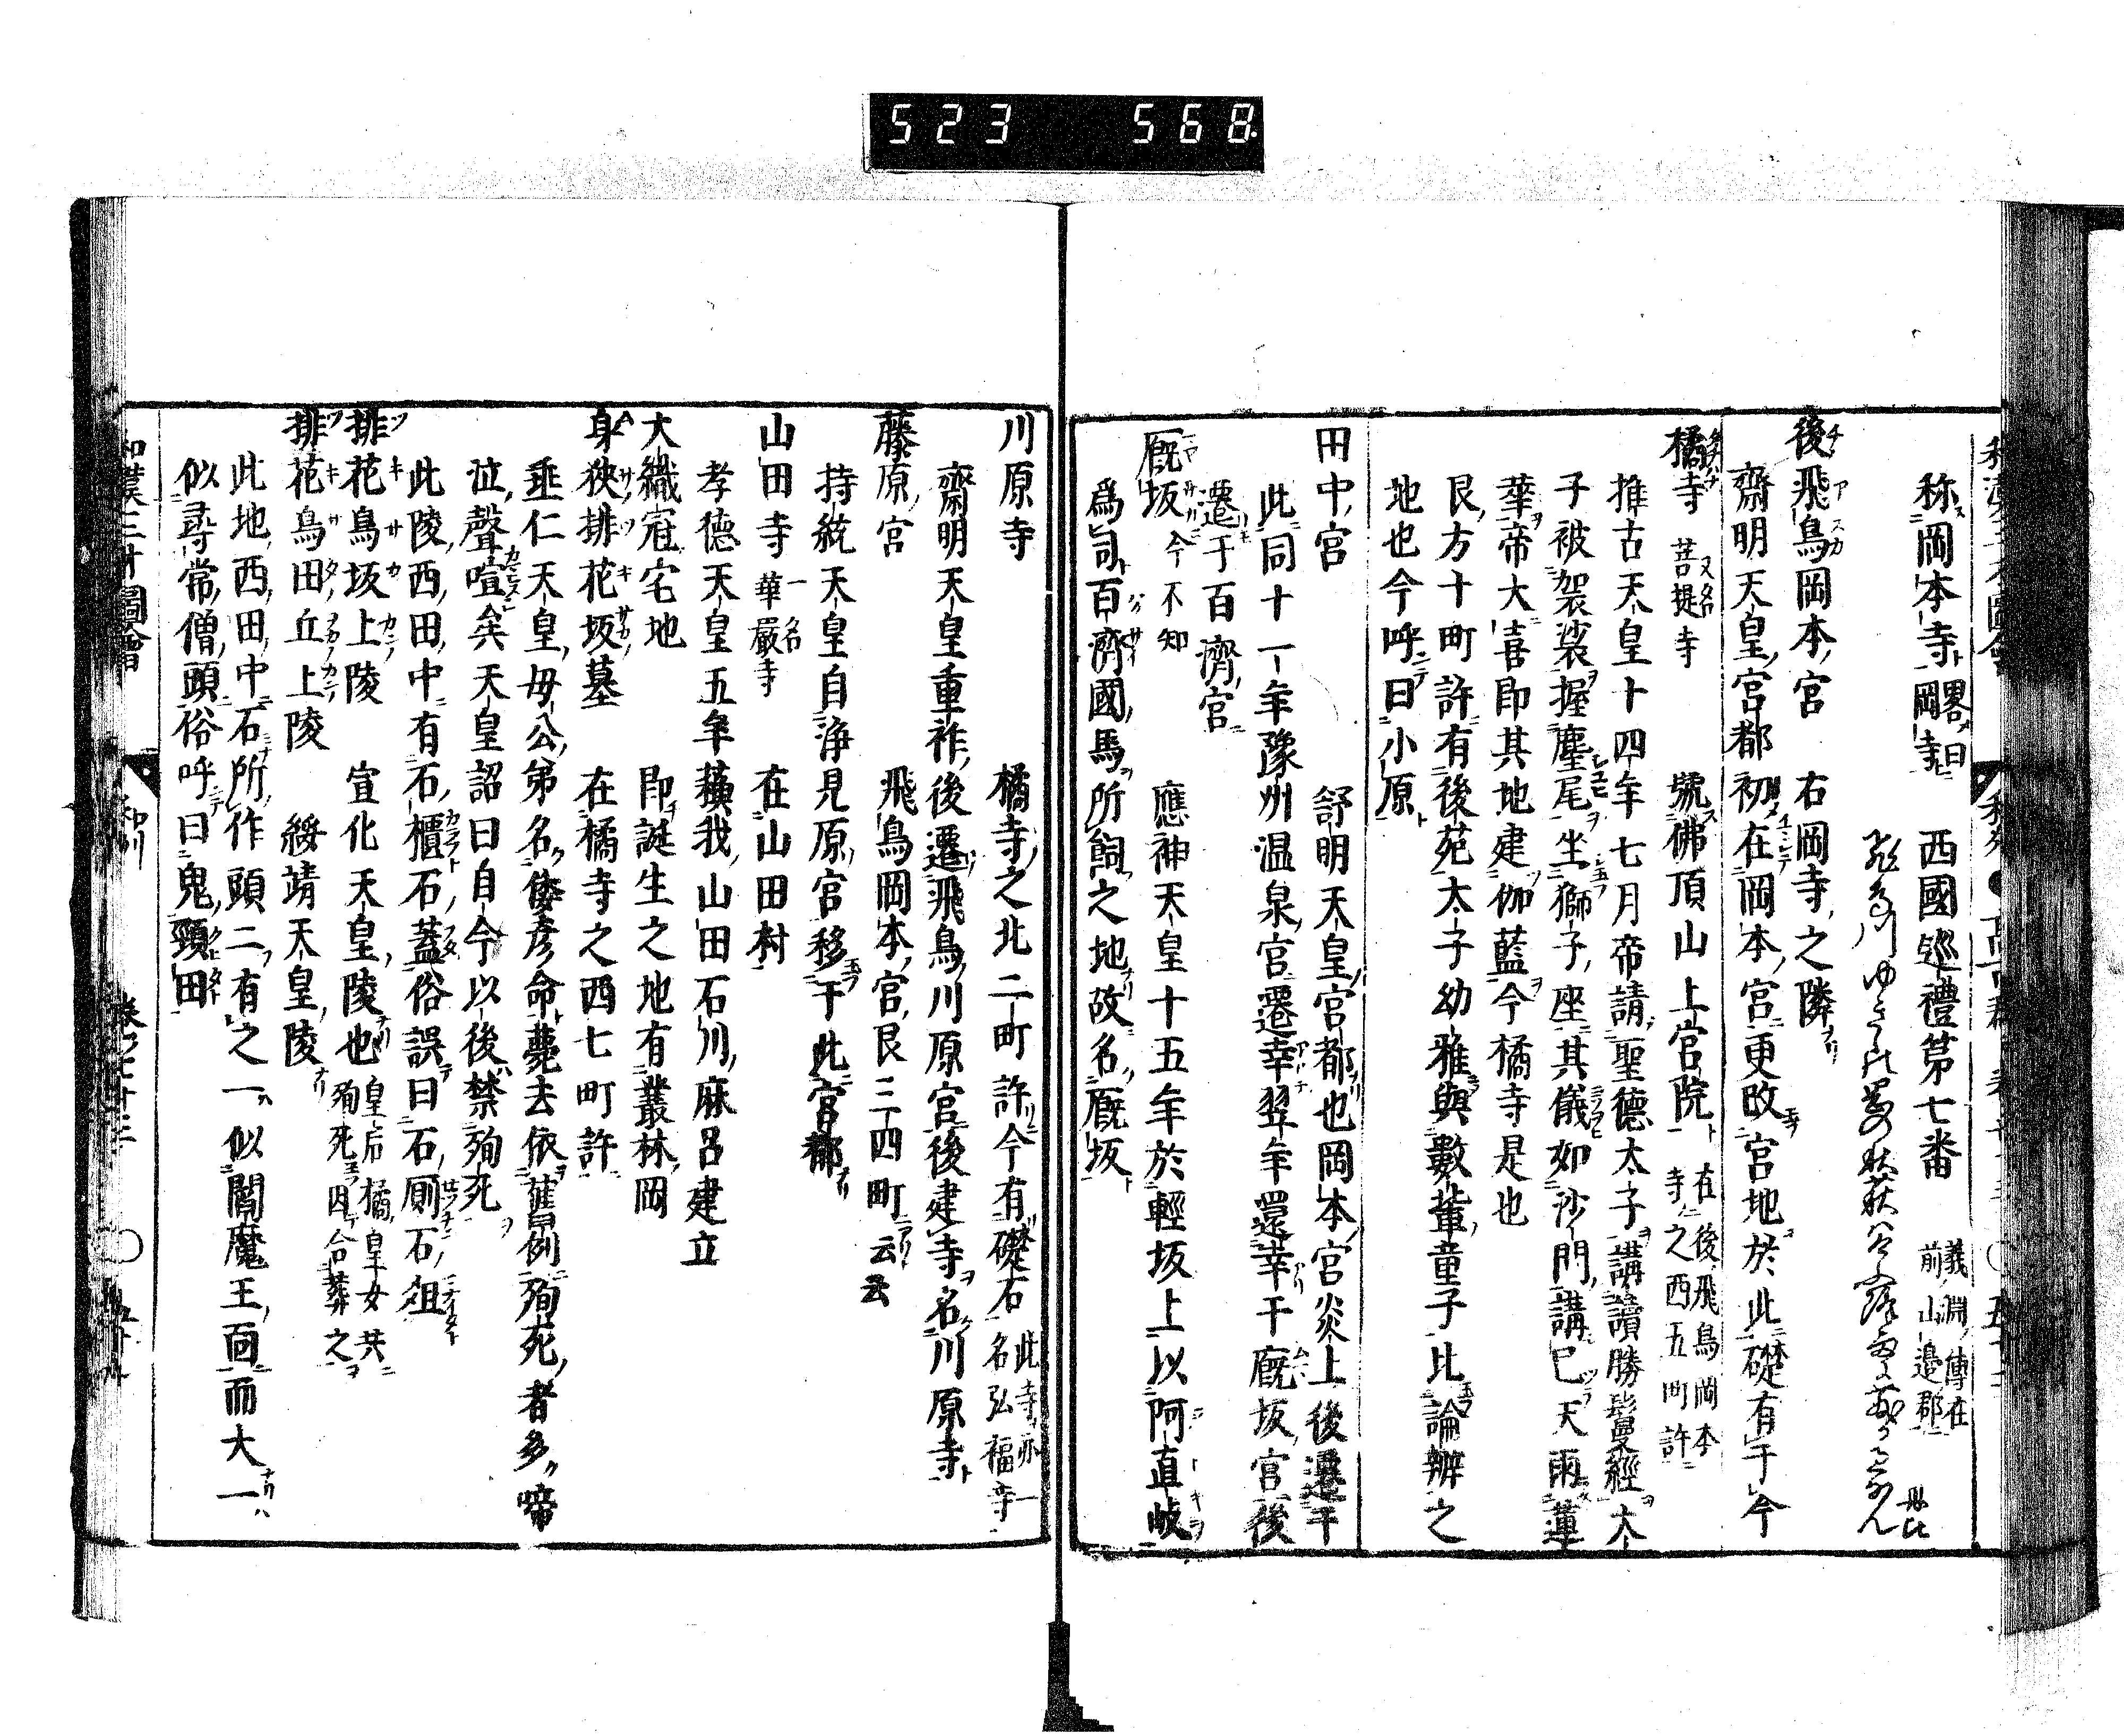 523 568
称岡本寺 畧曰岡寺 西國巡禮第七番 義淵傳在前山邊郡
後飛鳥岡本宮 右岡寺之隣
齋明天皇宮都初在岡本宮更改宮地於此礎有于今
橘寺 又名菩提寺 號佛頂山上宮院 在後飛鳥岡本寺之西五町許
推古天皇十四年七月帝請聖德太子講讀勝鬘經太
子被袈裟握塵尾坐獅子座其儀如沙門講已天雨蓮
華帝大喜即其地建伽藍今橘寺是也
艮方十町許有後苑太子幼雅與數輩童子比論辨之
地也今呼曰小原
田中宮 舒明天皇宮都也岡本宮炎上後遷于
此同十一年豫州温泉宮遷幸翌年還幸于厩坂宮後
遷于百濟宮
厩坂 今不知 應神天皇十五年於輕坂上以阿直岐
爲司百濟國馬所飼之地故名厩坂
川原寺 橘寺之北二町許今有礎石 此寺亦一名弘福寺
齋明天皇重祚後遷飛鳥川原宮後建寺名川原寺
藤原宮 飛鳥岡本宮艮三四町云云
持統天皇自淨見原宮移于此宮都
山田寺 一名華嚴寺 在山田村
孝德天皇五年蘓我山田石川麻呂建立
大織冠宅地 即誕生之地有叢林岡
身狹排花坂墓 在橘寺之西七町許
垂仁天皇母公弟名倭彦命薨去依舊例殉死者多啼
泣聲喧矣天皇詔曰自今以後禁殉死
此陵西田中有石櫃石蓋俗誤曰石厠石俎
排花鳥坂上陵 宣化天皇陵也 皇后橘皇女共殉死因合葬之
排花鳥田丘上陵 綏靖天皇陵
此地西田中石所作頭二有之一似閻魔王面而大一
似尋常僧頭俗呼曰鬼頸田
和漢三才圖會 和州 卷之七十三